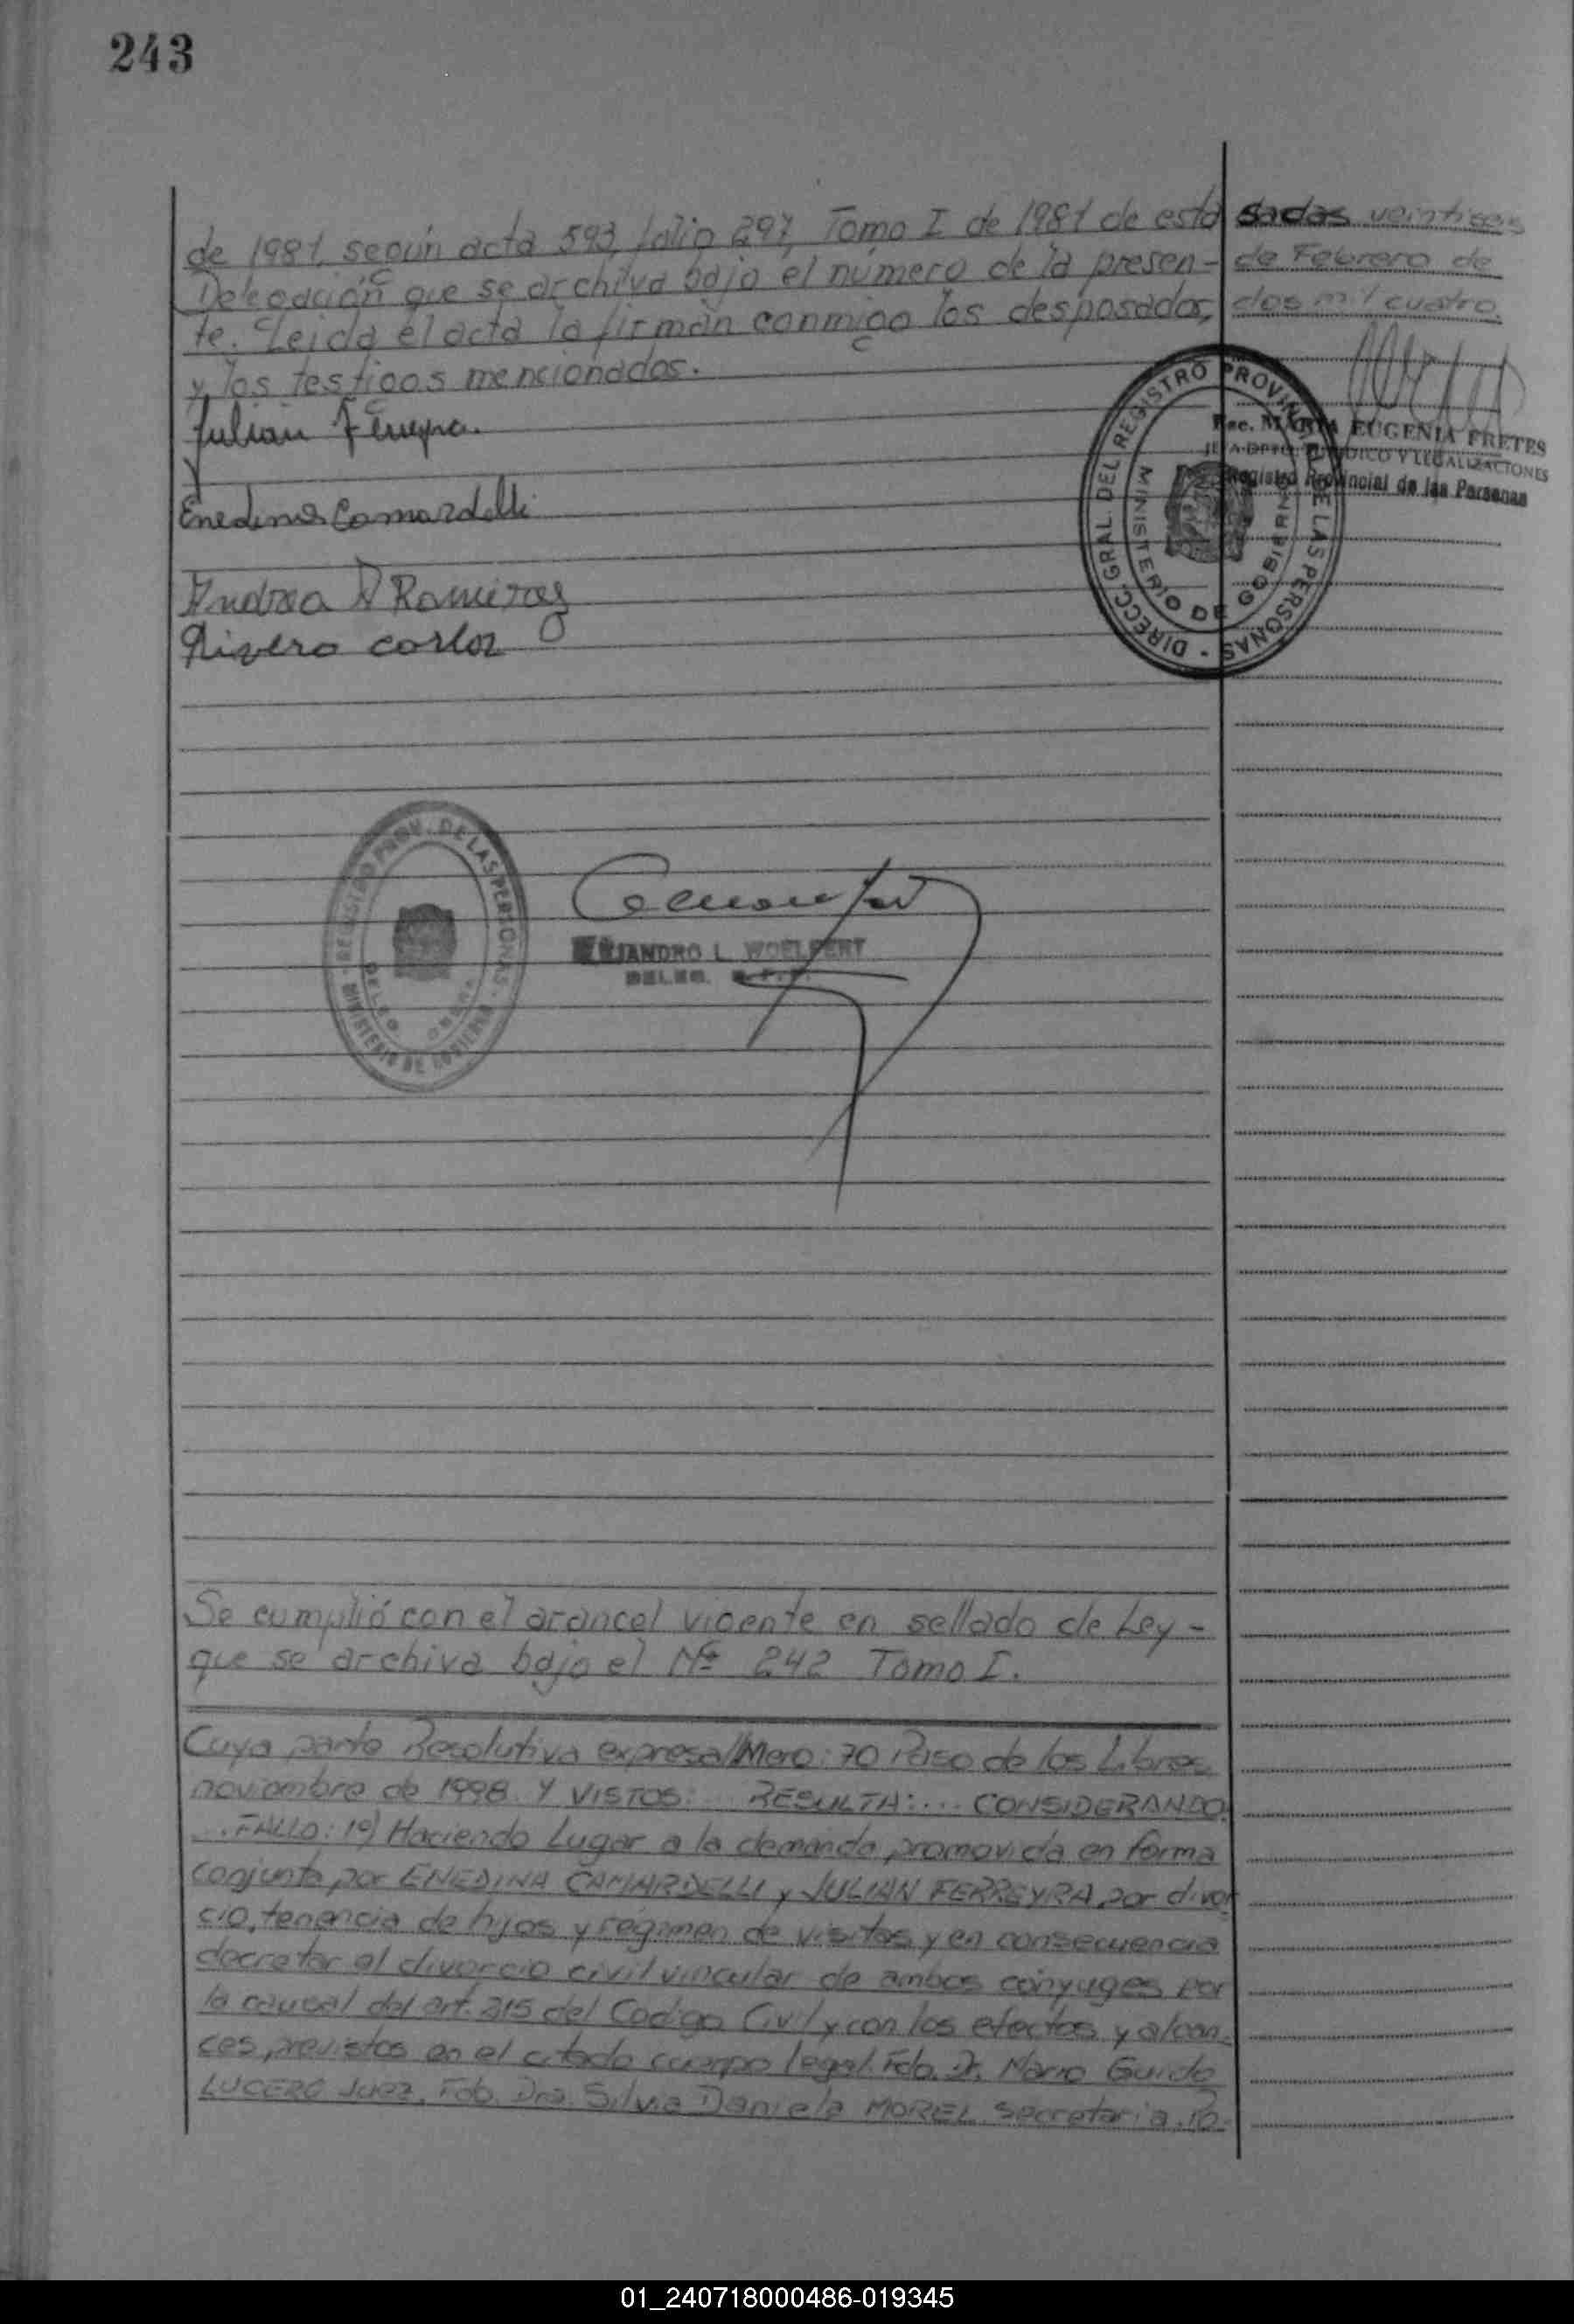 243
de 1981, según acta 593, folio 297, Tomo I de 1981 de esta
Delegación que se archiva bajo el número de la presen-
te. Leida el acta la firman conmigo los desposados,
y los testigos mencionados.
Julian Ferreyra.
Enedina Camardelli
Andrea Ramirez
Rivero Carlos
sadas veintiseis
de Febrero de
dos mil cuatro.
MARIA EUGENIA FRETES
JEFA DPTO. JURIDICO Y LEGALIZACIONES
Registro Provincial de las Personas
DIRECC. GRAL. DEL REGISTRO PROVINCIAL DE LAS PERSONAS
MINISTERIO DE GOBIERNO
REGISTRO PROV. DE LAS PERSONAS
MINISTERIO DE GOBIERNO
DELEG.
ALEJANDRO L. WOELFERT
DELEG. R.P.P.
Se cumplió con el arancel vigente en sellado de Ley -
que se archiva bajo el Nº 242 Tomo I.
Cuya parte Resolutiva expresa: 70 Paso de los Libres
noviembre de 1998. Y VISTOS:... RESULTA:... CONSIDERANDO:
...FALLO: 1º) Haciendo Lugar a la demanda promovida en forma
conjunta por ENEDINA CAMARDELLI y JULIAN FERREYRA por divor
cio, tenencia de hijos y régimen de visitas y en consecuencia
decretar el divorcio civil vincular de ambos cónyuges por
la causal del art. 215 del Codigo Civil y con los efectos y alcan-
ces previstos en el citado cuerpo legal. Fdo. Dr. Mario Guido
LUCERO Juez. Fdo. Dra. Silvia Daniela MOREL Secretaria. Po-
01_240718000486-019345